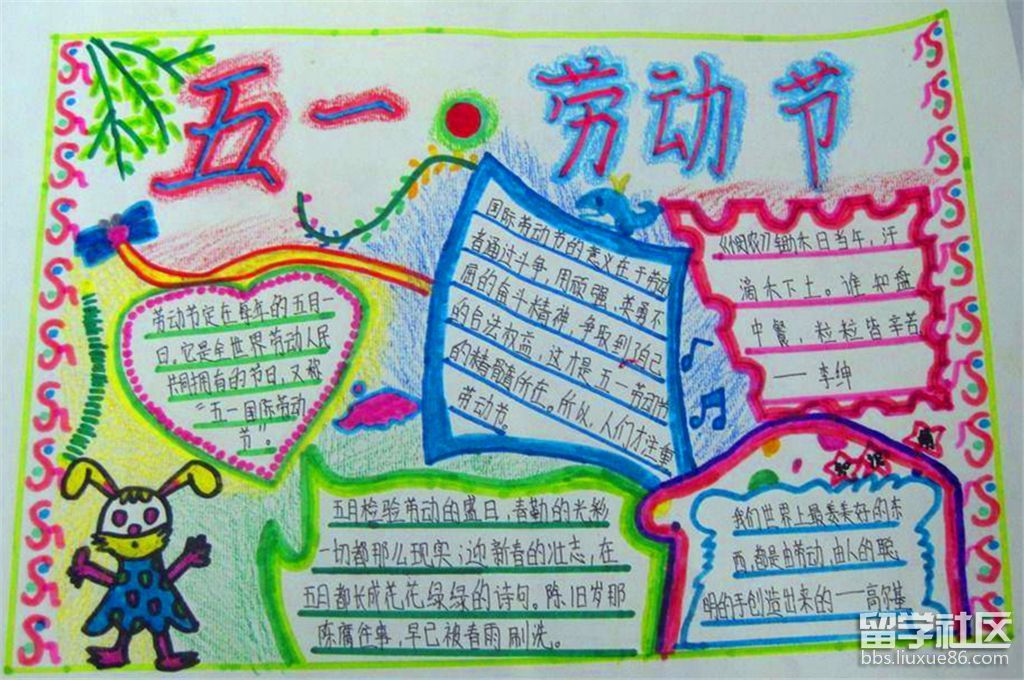 五一 劳动节
劳动节定在每年的五月一
日。它是全世界劳动人民
共同拥有的节日，又被
“五一国际劳动
节”。
国际劳动节的意义在于劳动
者通过斗争，用顽强、英勇不
屈的奋斗精神，争取到了自己
的合法权益，这才是五一劳动节
的精髓所在。所以，人们才注重
劳动节。
《悯农》锄禾日当午，汗
滴禾下土。谁知盘
中餐，粒粒皆辛苦
——李绅
五月检验劳动的盛日，春勤的光彩
一切都那么现实；迎新春的壮志，在
五日都长成花花绿绿的诗句。陈旧岁那
陈腐往事，早已被春雨刷洗。
知识
我们世界上最美好的东
西，都是由劳动，由人的聪
明的手创造出来的——高尔基
留学社区
bbs.liuxue86.com